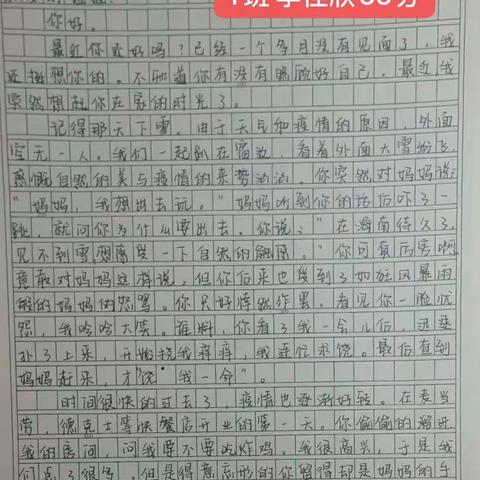 你好。
最近你还好吗?已经一个多月没有见面了,我
还挺想你的。不知道你有没有照顾好自己。最近我
突然想起你在家的时光了。
记得那天下雪。由于天气和疫情的原因,外面
空无一人。我们一起趴在窗边,看着外面大雪纷飞,
感慨自然的美与疫情的来势汹汹。你突然对妈妈说:
“妈妈,我想出去玩。”妈妈听到你的话后吓了一
跳,就问你为什么要出去。你说:“在海南待久了,
见不到雪,想感受一下自然的
。”你可真厉害啊,
竟敢对妈妈这样说。但你后来也受到了如狂风暴雨
般的妈妈的怒骂。你只好悻然作罢。看见你一脸忧
怨,我哈哈大笑。谁料,你看了我一会儿后,迅速
扑了上来,开始挠我痒痒,我连忙求饶。最后直到
妈妈赶来,才“饶”我一命”。
时间很快的过去了,疫情也逐渐好转。在麦当
劳,德克士等快餐店开业的第一天。你偷偷的溜进
我的房间,问我要不要吃炸鸡。我很高兴,于是我
们点了很多。但是得意忘形的你留得却是妈妈的手